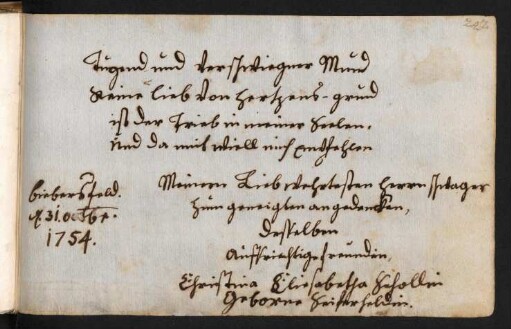 207
Tugend und verschwiegner Mund
Reine lieb von hertzens-grund
ist der Trieb in meiner Seelen,
Und da mit will mich empfehlen
Meinem Lieb wehrtesten herrn schwager
zum geneigten angedencken,
desselben
Auffrichtige freundin,
Christina Eliesabetha
Geborne
biebersfeld.
d 31. octbr.
1754.